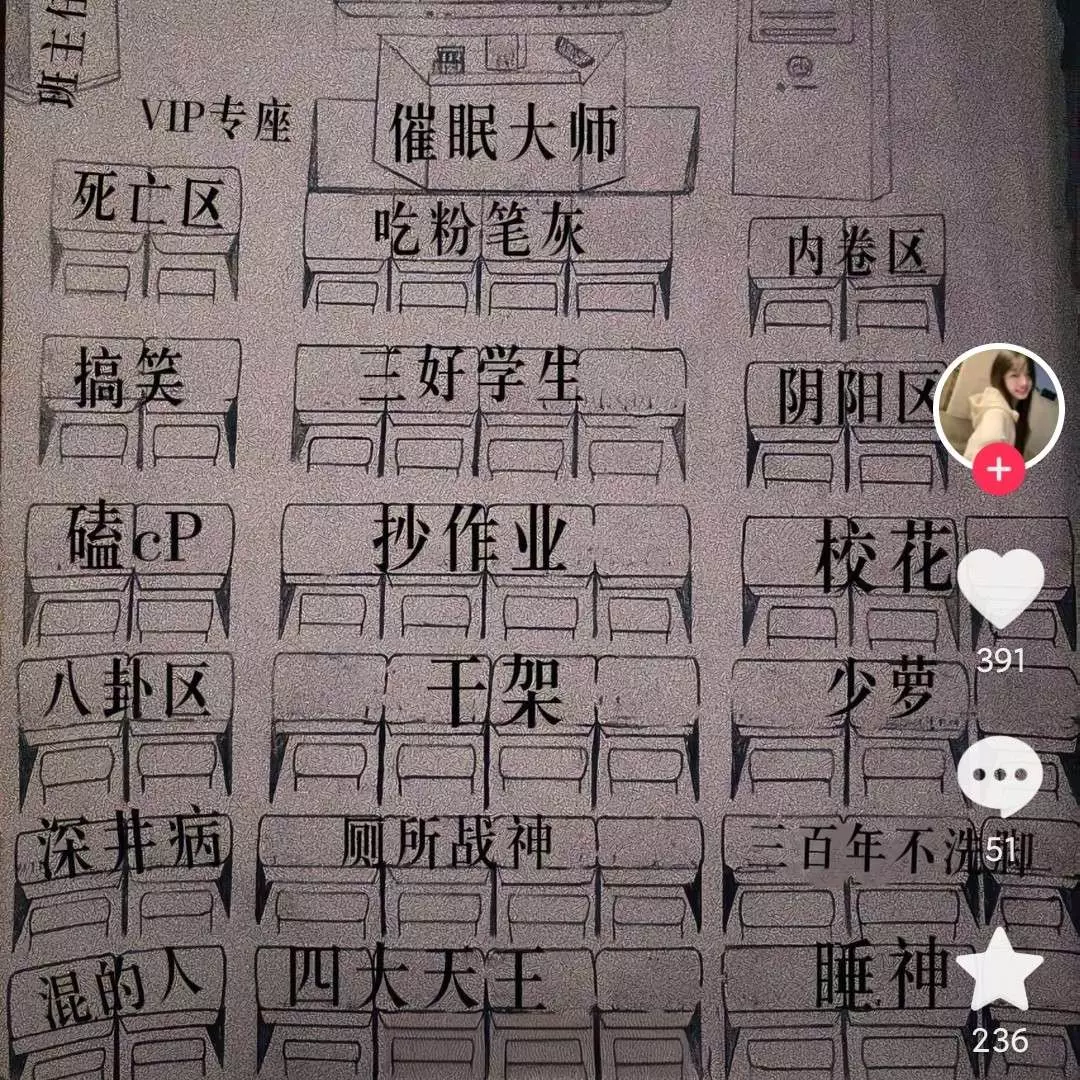 班主任
VIP专座
催眠大师
死亡区
吃粉笔灰
内卷区
搞笑
三好学生
阴阳区
磕cP
抄作业
校花
八卦区
干架
少萝
391
深井病
厕所战神
三百年不洗脚
51
混的人
四大天王
睡神
236